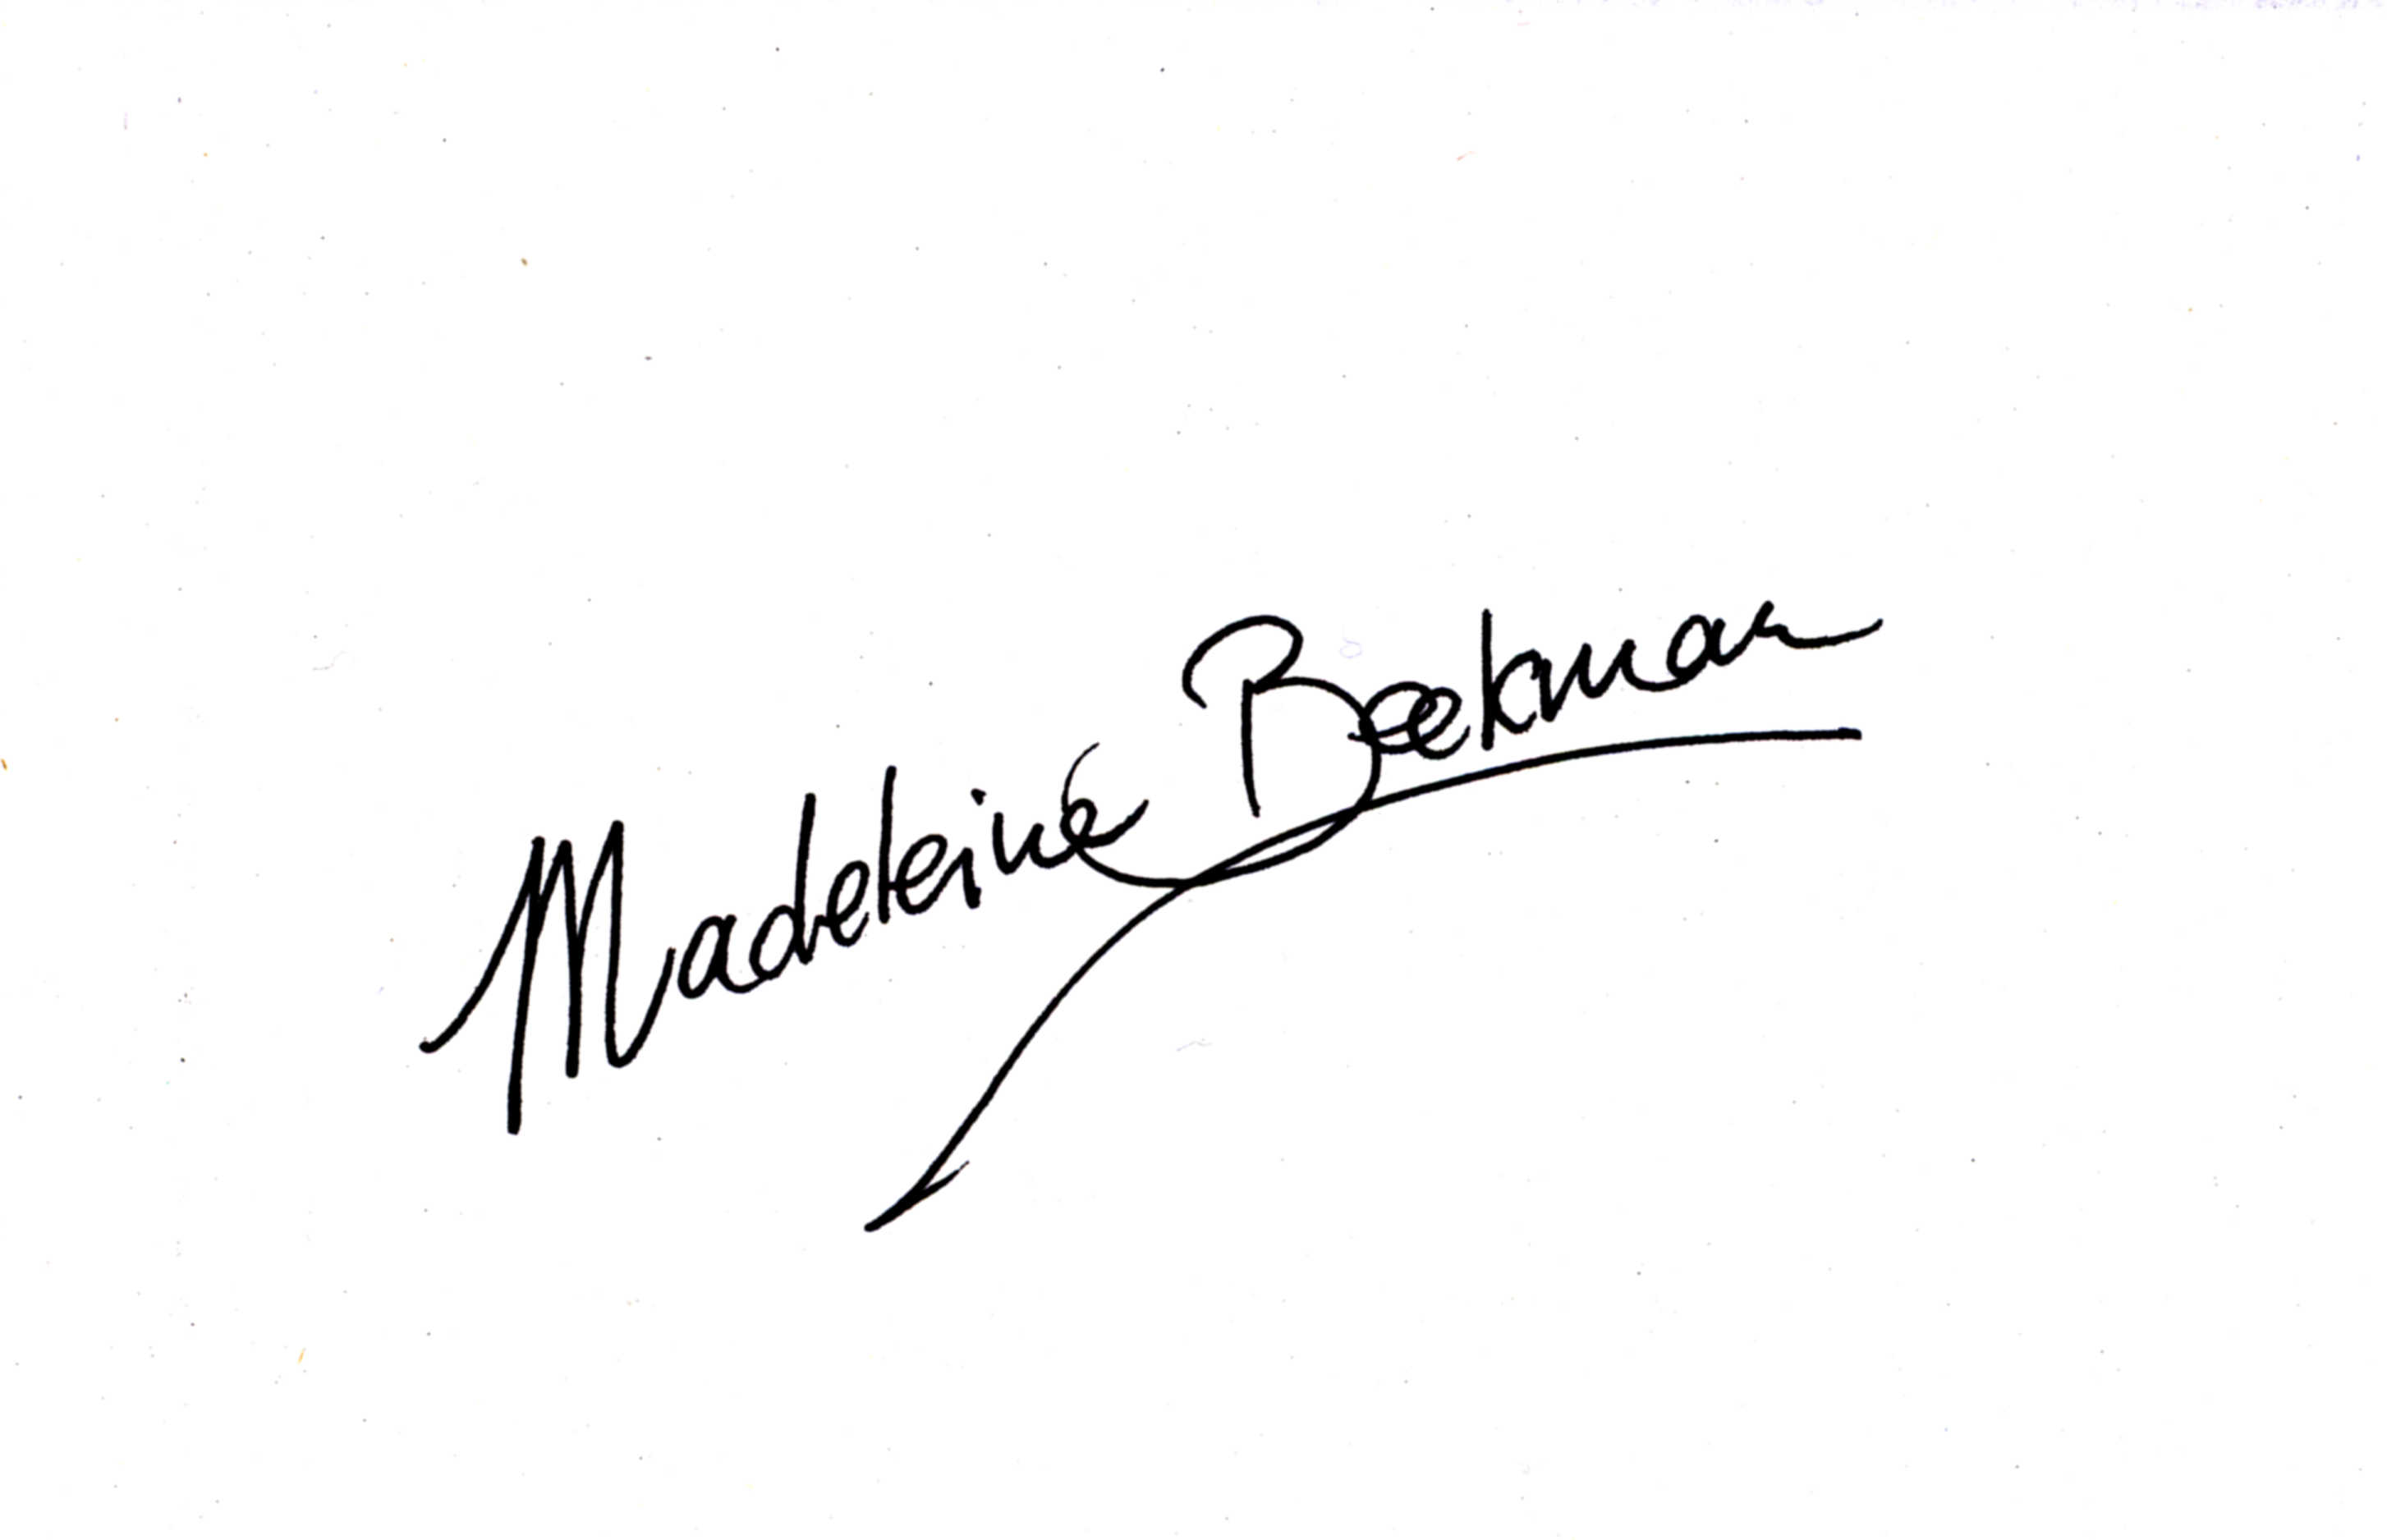 Madeleine Beekman